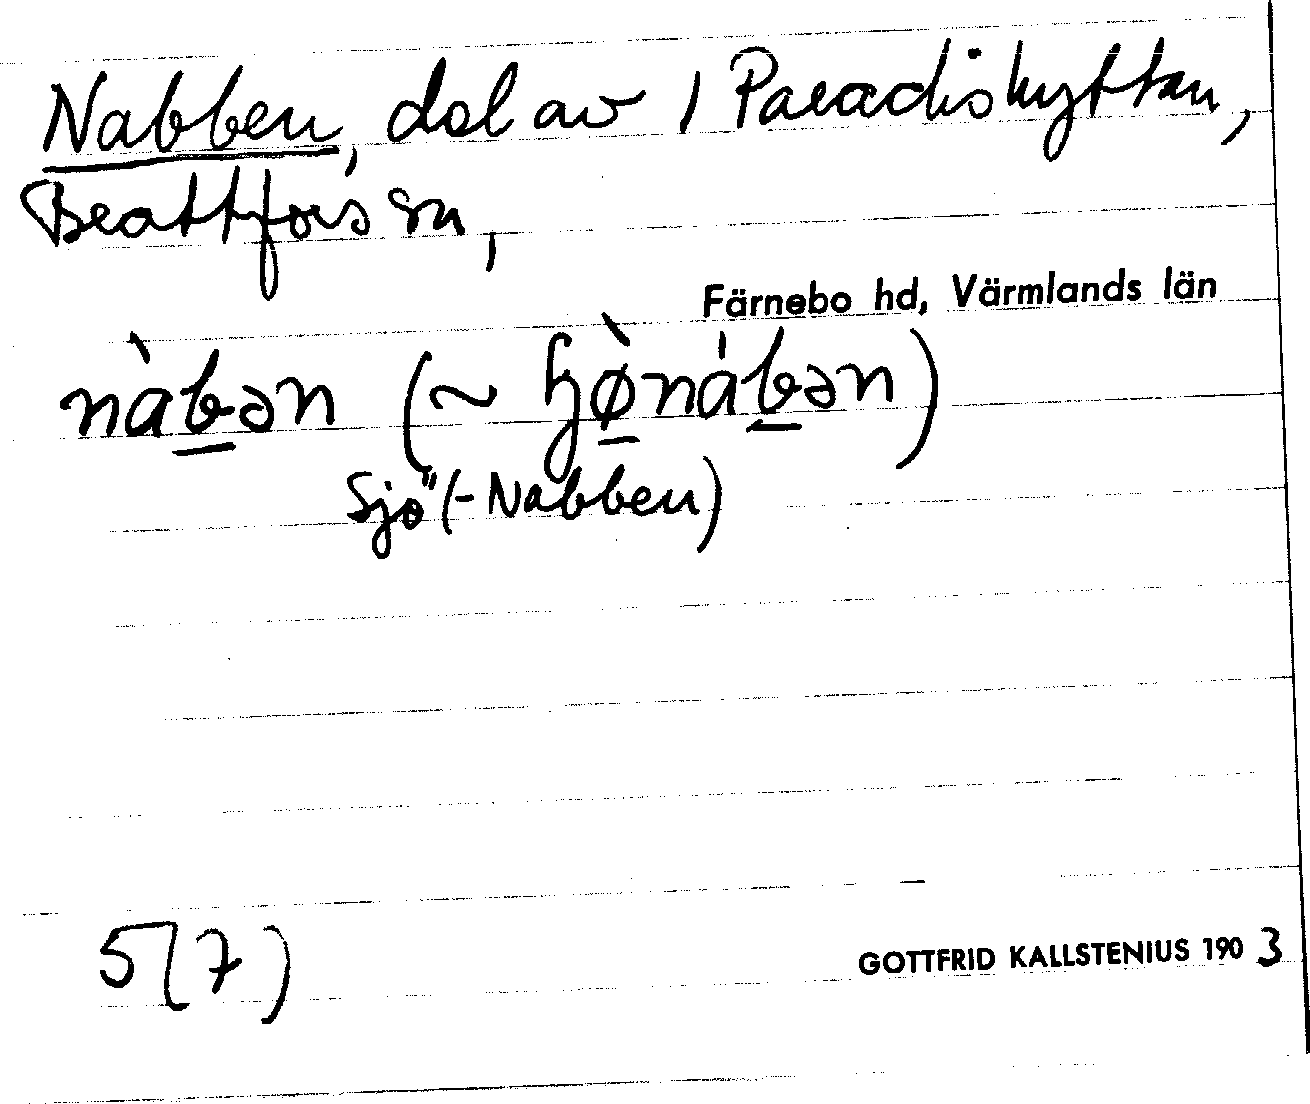 Nabben, del av 1 Paradishyttan,
Brattfors sn,
Färnebo hd, Värmlands län
nàbən (~ ɧø̀nábən)
Sjö (-Nabben)
5 (7)
GOTTFRID KALLSTENIUS 1903